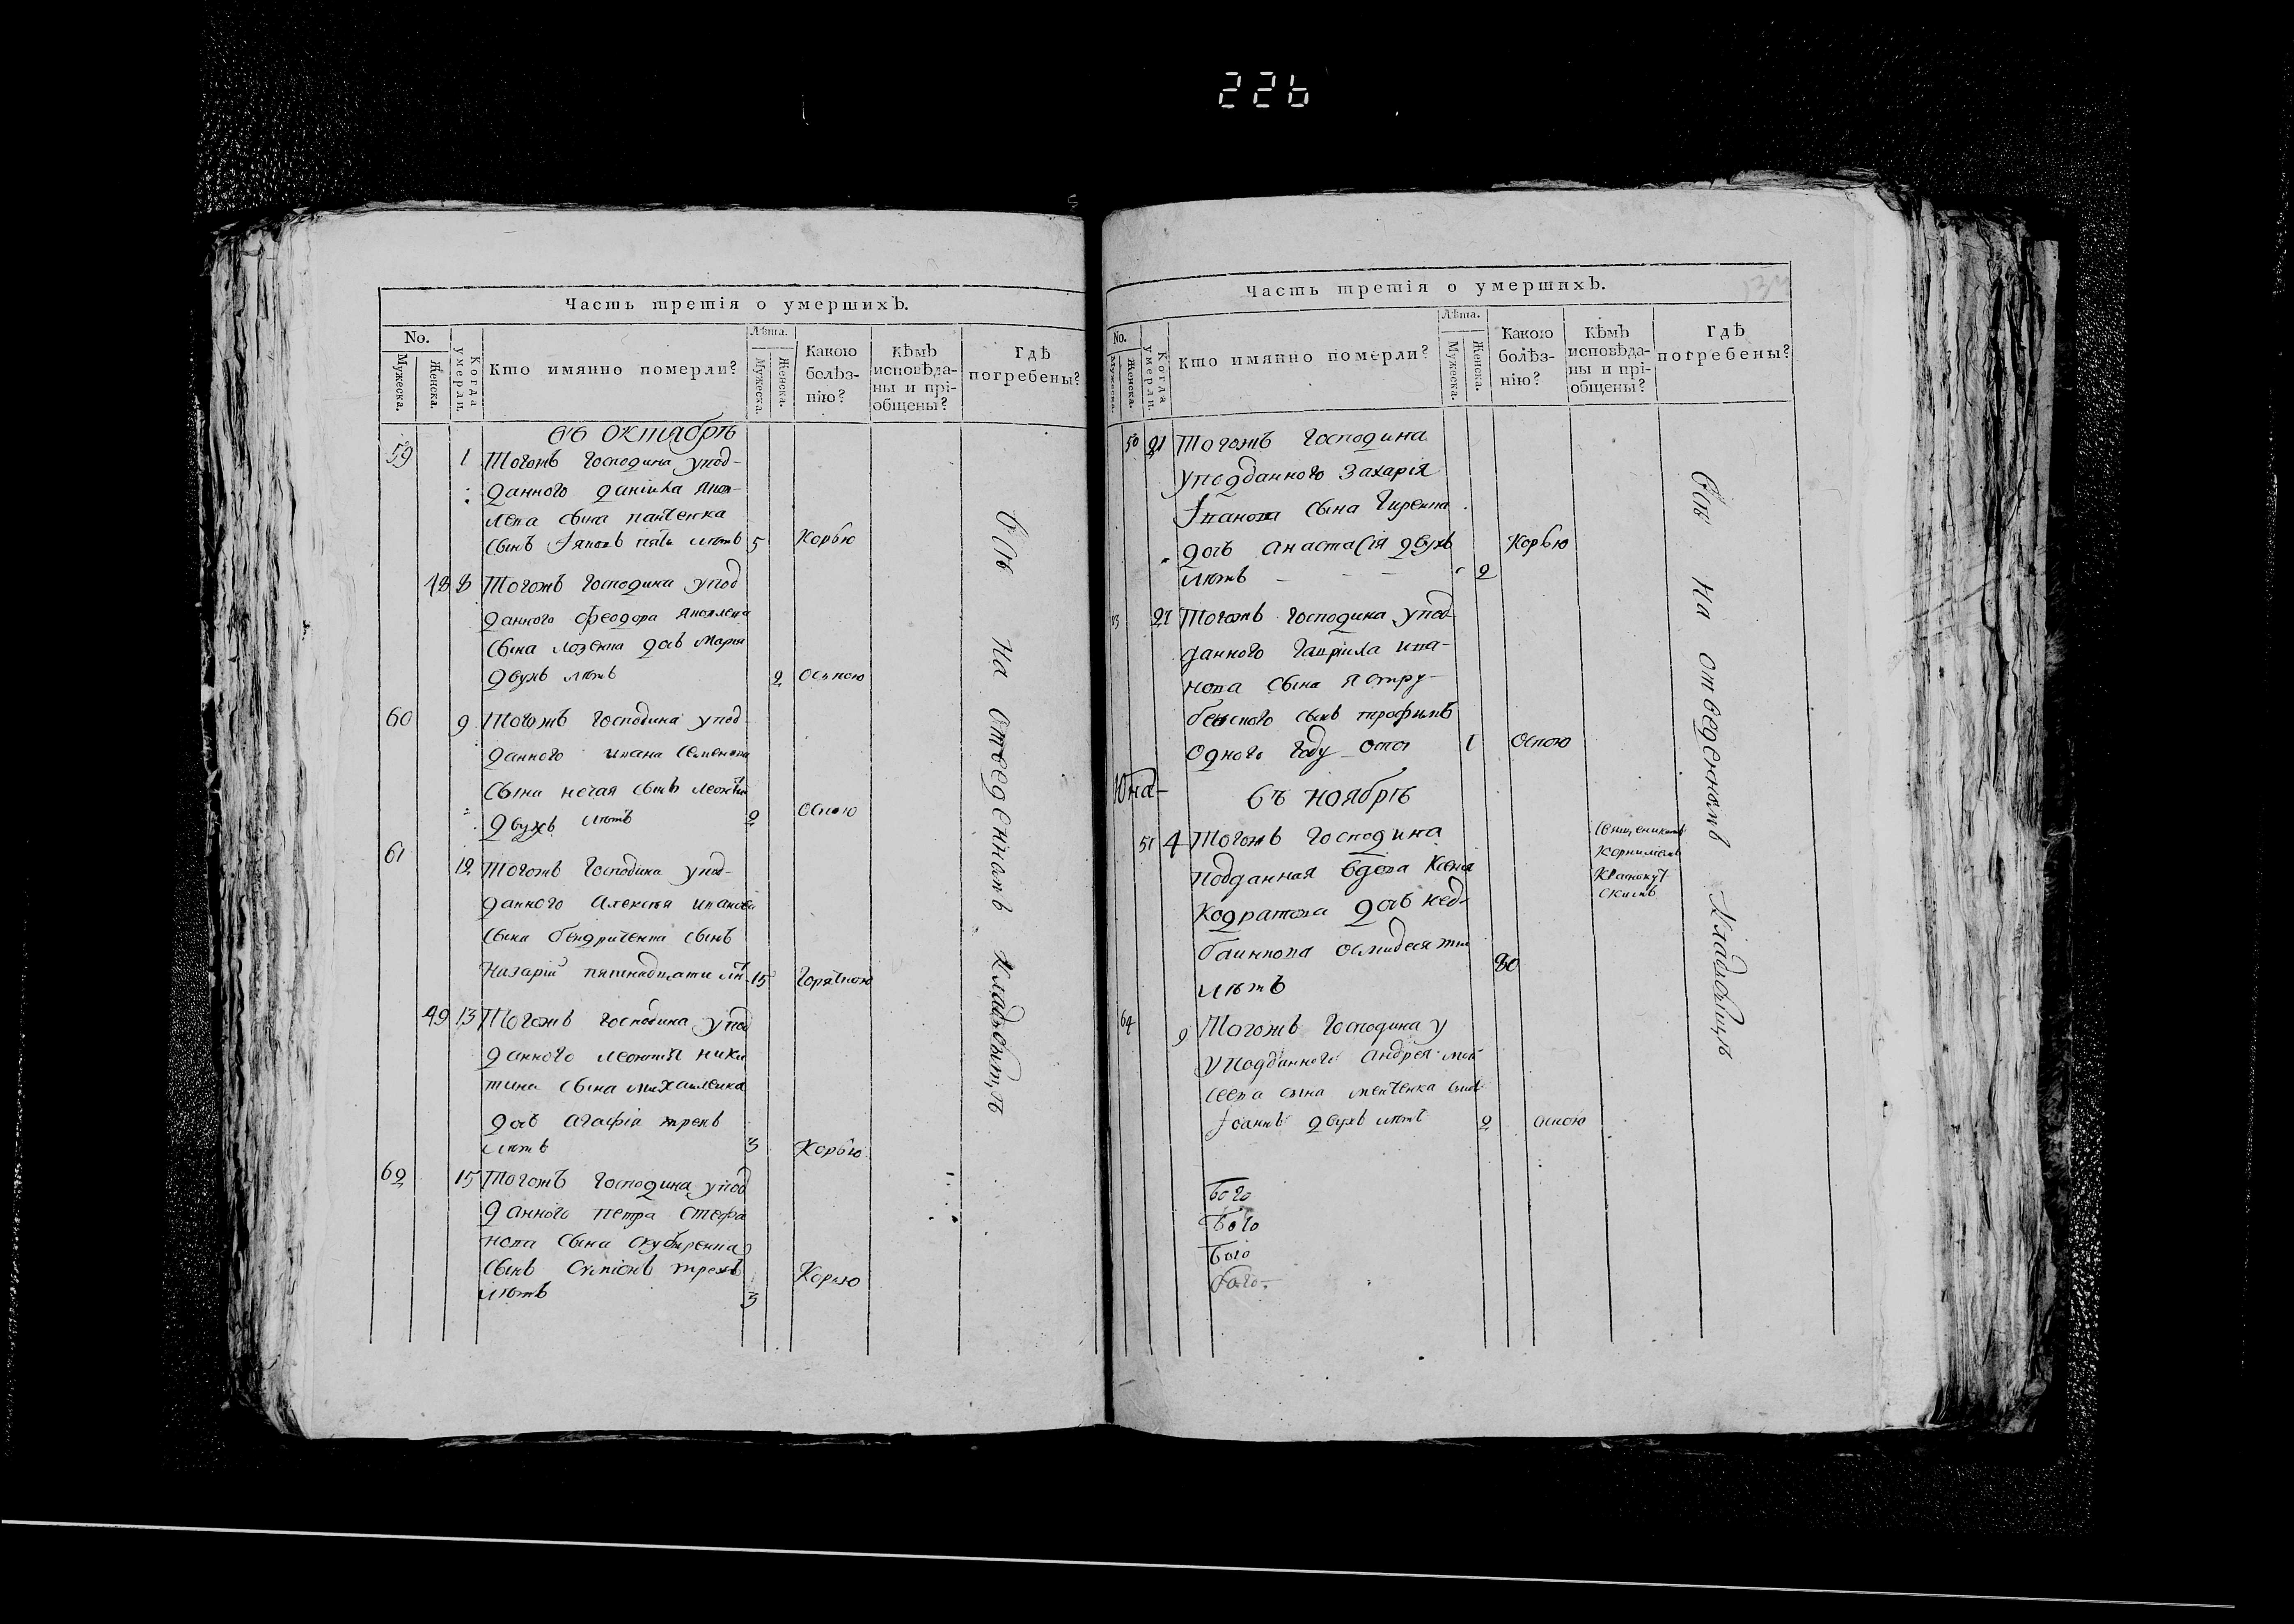 226
Часть третія о умершихъ.
No.
Мужеска.
Женска.
Когда умерли.
Кто имянно померли?
Лѣта.
Мужеска.
Женска.
Какою болѣз-нію?
Кѣмъ исповѣда-ны и прі-общены?
Гдѣ погребены?
въ октябрѣ
59 1 Тогожъ господина упод-
данного даніила Яков-
лева сына панченка
сынъ Іяковъ пять лѣтъ 5 Корью
48 8 Тогожъ господина упод
данного феодора Яковлева
сына лозенка дочь Марія
двухъ лѣтъ 2 Осьпою
60 9 Тогожъ господина упод-
данного ивана Семенова
сына нечая сынъ леонтій
двухъ лѣтъ 2 Оспою
61 12 Тогожъ господина упод-
данного Алексѣя иванова
сына бондриченка сынъ
Назарій пятнадцати лѣ 15 Горячкою
49 13 Тогожъ господина упод
данного леонтія ники
тина сына михаиленка
дочь агафія трехъ
лѣтъ 3 Корью
62 15 Тогожъ господина упод
данного петра стефа
нова сына скубиренка
сынъ трехъ
лѣтъ 3 Корью
всѣ на отведенномъ кладбищѣ
Часть третія о умершихъ.
No.
Мужеска.
Женска.
Когда умерли.
Кто имянно померли?
Лѣта.
Мужеска.
Женска.
Какою болѣз-нію?
Кѣмъ исповѣда-ны и прі-общены?
Гдѣ погребены?
50 21 Тогожъ господина
уподданного Захарія
Іванова сына Чиренка
дочь анастасія двухъ Корью
лѣтъ 2
27 Тогожъ господина упод-
данного гавріила ива-
нова сына ястру-
бенского сынъ трофимъ
одного году 1 Оспою
въ ноябрѣ
51 4 Тогожъ господина
подданная вдова Ксенія
Кодратова дочь
осмидесяти 80
лѣтъ
Священикомъ
Корниліемъ
64 9 Тогожъ господина у
уподданного андрея мой
сеева сына менченка сынъ
Іоаннъ двухъ лѣтъ 2 оспою
всѣ на отведенномъ кладбищѣ